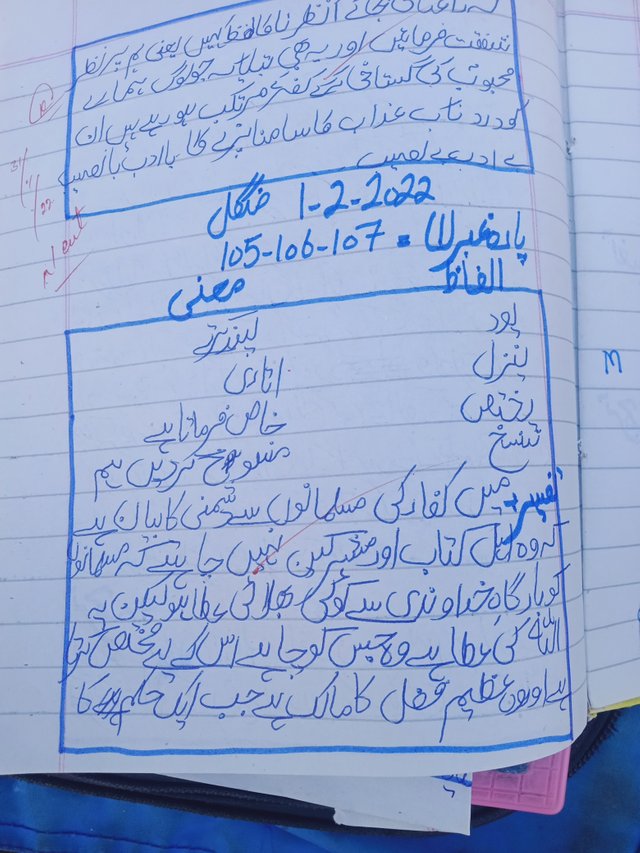 کہ راعنا کی بجائے انظرنا کا لفظ کہیں یعنی ہم پر نظر
شفقت فرمائیں اور یہ بھی بتایا کہ جو لوگ ہمارے
محبوب کی گستاخی کرکے کفر کے مرتکب ہو رہے ہیں ان
کو درد ناک عذاب کا سامنا پڑے گا باادب بانصیب
بے ادب بے نصیب
1-2-2022 منگل
پارہ نمبر (1) = 105-106-107
الفاظ معنی
یود پسند کرتے
ینزل اتاری
یختص خاص فرماتا ہے
ننسخ منسوخ کردیں ہم
تفسیر میں کفار کی مسلمانوں سے دشمنی کا بیان ہے
کہ وہ اہل کتاب اور مشرکین نہیں چاہتے کہ مسلمانوں
کو بارگاہ خداوندی سے کوئی بھلائی عطا ہو لیکن یہ
اللہ کی عطا ہے وہ جس کو چاہے اس کے لیے مختص کرتا
ہے اور وہ عظیم فضل کا مالک ہے جب ایک حکم کا
M